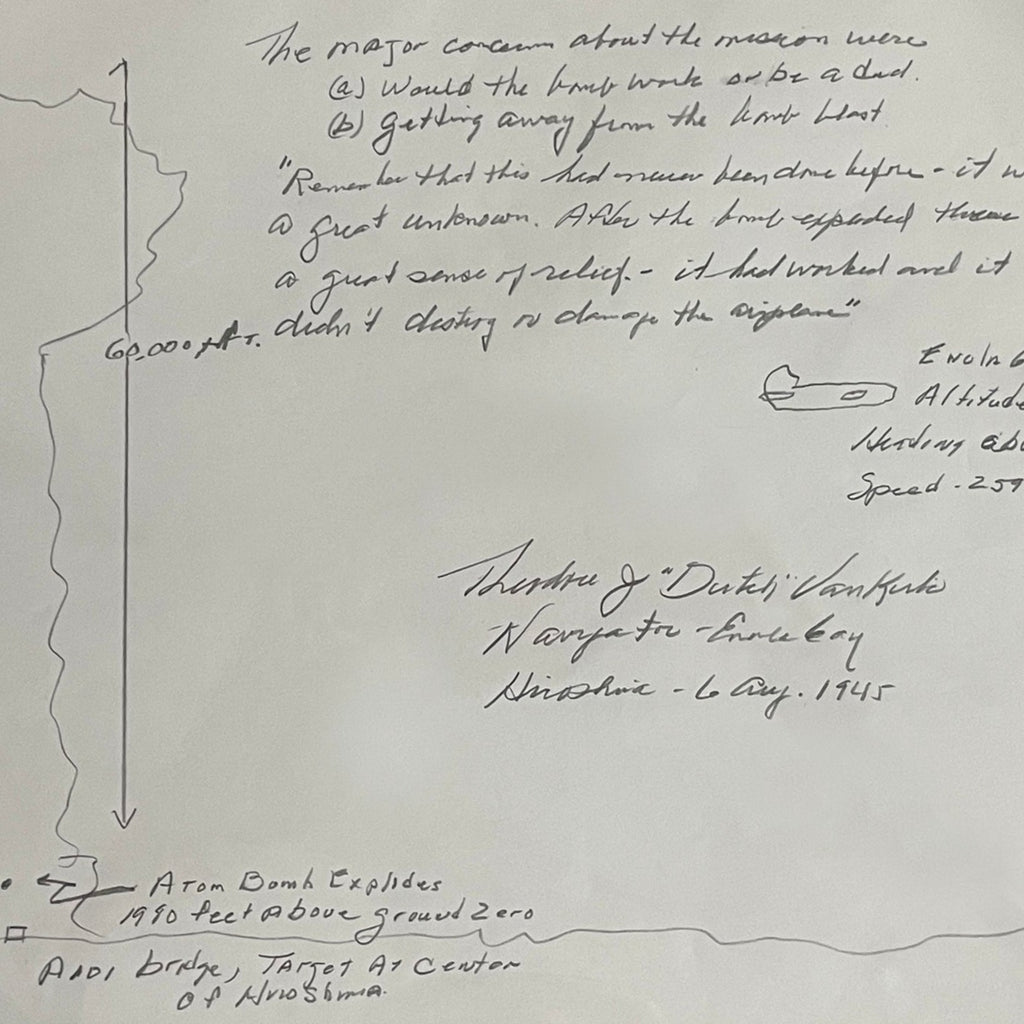 The major concern about the mission were
(a) Would the bomb work or be a dud.
(b) getting away from the bomb blast
"Remember that this had never been done before - it w
a great unknown. After the bomb exploded there
a great sense of relief - it had worked and it
didn't destroy or damage the airplane"
60,000 ft.
Enola G
Altitude
Heading abo
Speed - 259
Theodore J "Dutch" VanKirk
Navigator - Enola Gay
Hiroshima - 6 Aug. 1945
Atom Bomb Explodes
1990 feet above ground zero
Aioi bridge, Target At Center
of Hiroshima.